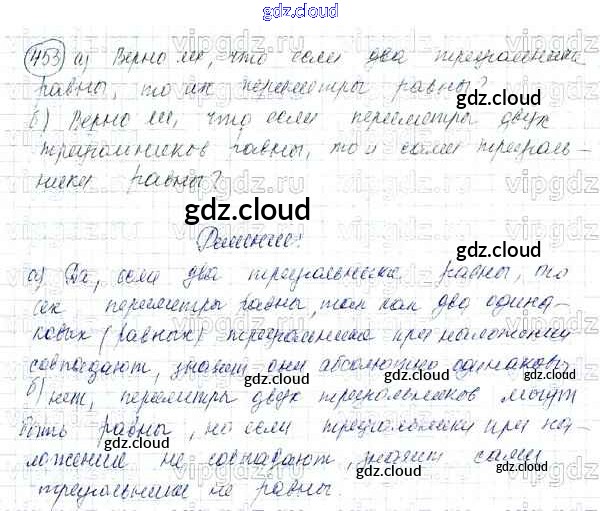 gdz.cloud
453 а) Верно ли, что если два треугольника
равны, то их периметры равны?
б) Верно ли, что если периметры двух
треугольников равны, то и сами треуголь-
ники равны?
gdz.cloud
Решение:
а) Да, если два треугольника равны, то
их периметры равны, так как два одина-
ковых (равных) треугольника при наложении
совпадают, значит они абсолютно одинаковы
б) нет, периметры двух треугольников могут
быть равны, но если треугольники при на-
ложении не совпадают, значит сами
треугольники не равны.